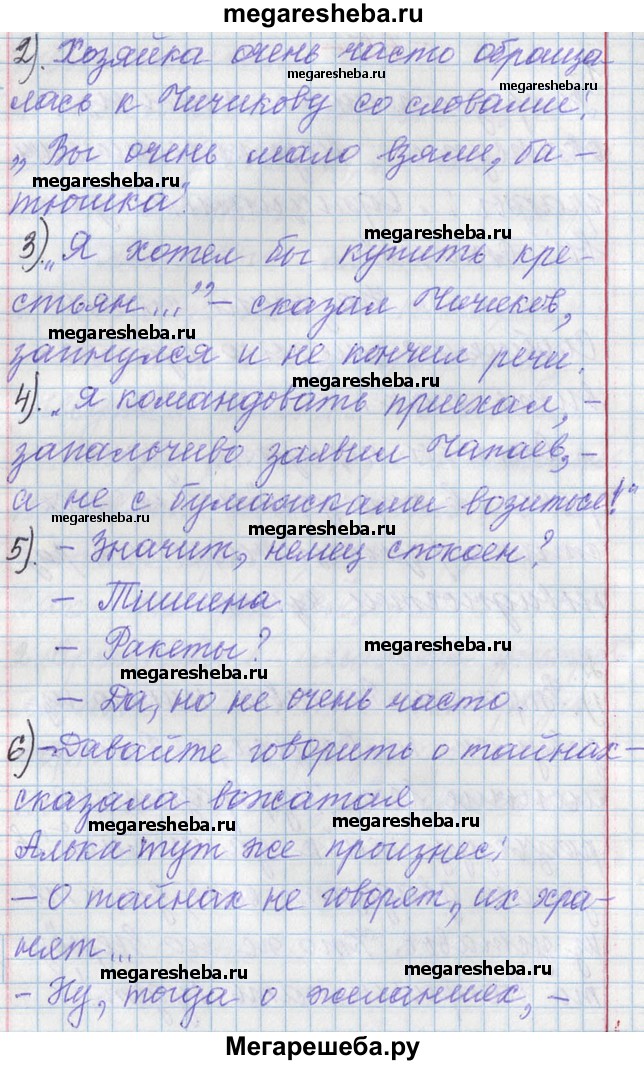 megaresheba.ru
2). Хозяйка очень часто обраща
megaresheba.ru
лась к Чичикову со словами:
„Вы очень мало взяли, ба-
megaresheba.ru
тюшка".
megaresheba.ru
3). „Я хотел бы купить кре-
стьян..." – сказал Чичиков,
megaresheba.ru
запнулся и не кончил речи.
megaresheba.ru
4). „Я командовать приехал, –
запальчиво заявил Чапаев, –
а не с бумажками возиться!"
megaresheba.ru
megaresheba.ru
5). – Значит, немец спокоен?
– Тишина
– Ракеты?
megaresheba.ru
megaresheba.ru
– Да, но не очень часто.
6) – Давайте говорить о тайнах –
сказала вожатая
megaresheba.ru
megaresheba.ru
Алька тут же произнес:
– О тайнах не говорят, их хра-
нят...
megaresheba.ru
megaresheba.ru
– Ну, тогда о желаниях, –
Мегарешеба.ру